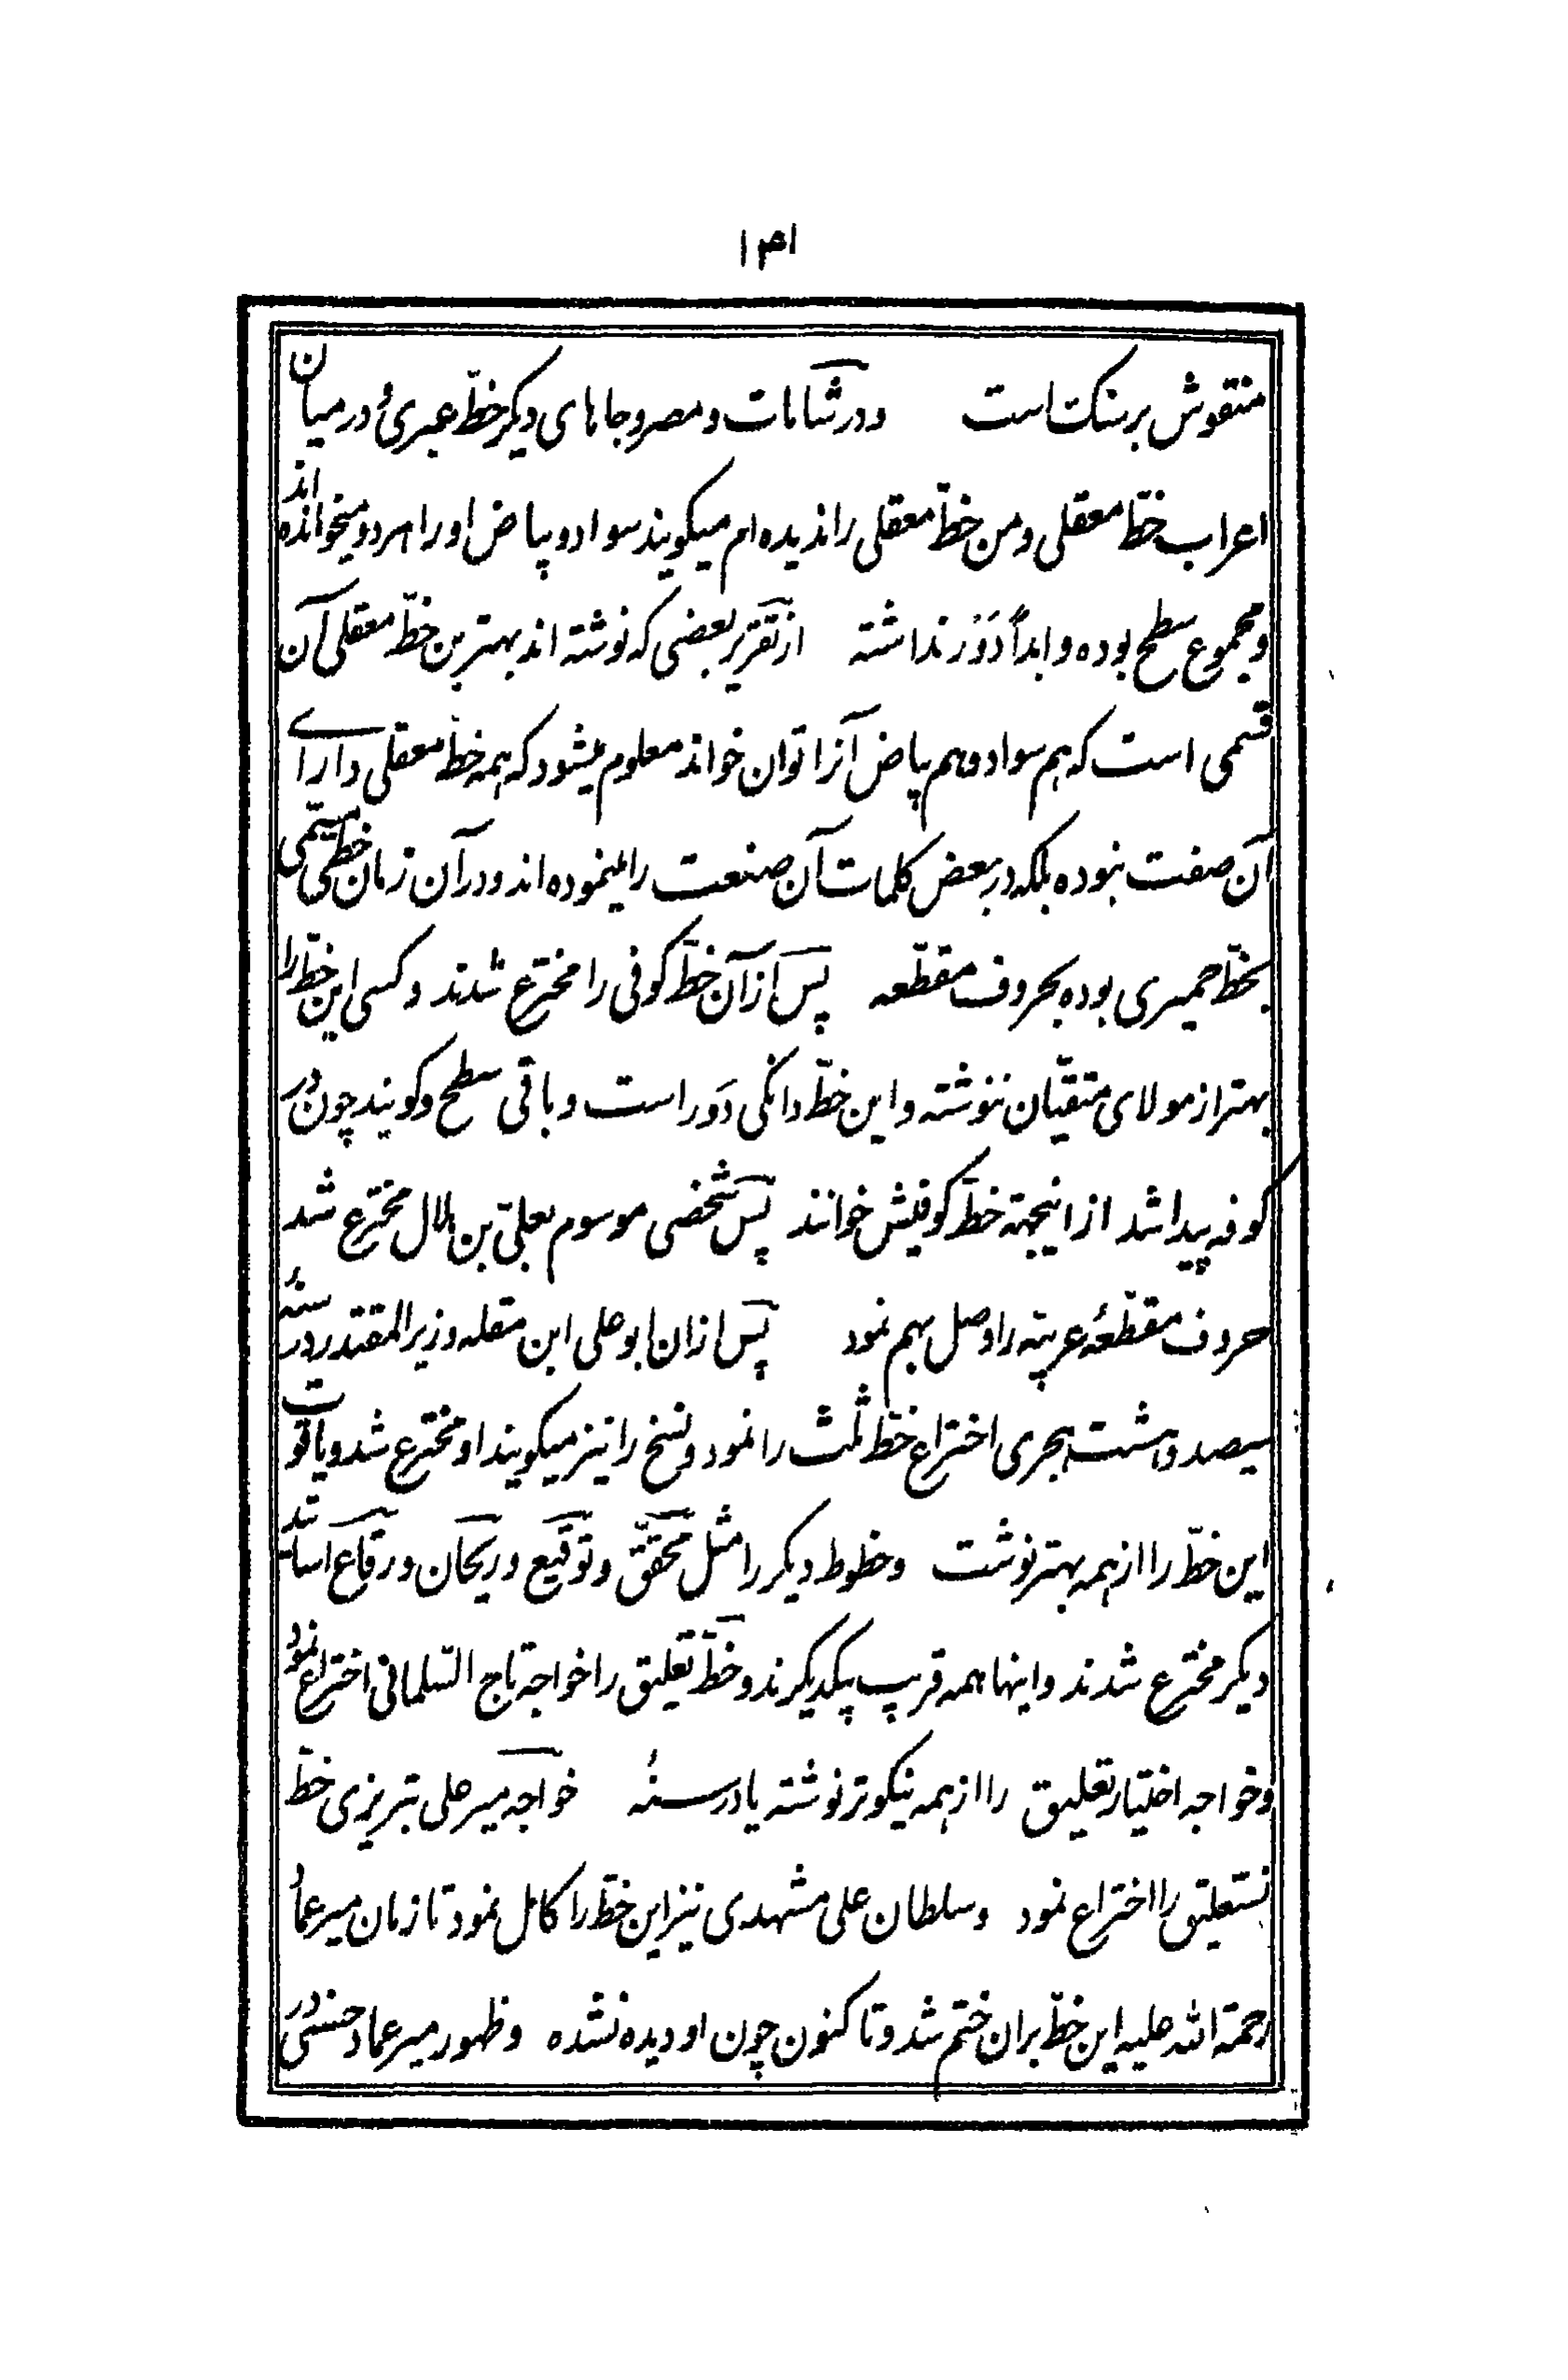 ۱۴۱
منقوش بر سنک است ودر شامات و مصر و جاهای دیکر خطّ عبریُ در میان
اعراب خطّ معقلی ومن خطّ معقلی را ندیده ام میکویند سواد و بیاض او را هر دو میخوانده اند
ومجموع سطح بوده وابداً دَوْر نداشته از تقریر بعضی که نوشته اند بهترین خطّ معقلی آن
قسمی است که هم سواد وهم بیاض آنرا توان خواند معلوم میشود که همه خطّ معقلی دارای
آن صفت نبوده بلکه در بعض کلمات آن صنعت را مینموده اند ودر آن زمان خطّی مسمّی
بخطّ حمیری بوده بحروف مقطّعه پس از آن خطّ کوفی را مخترع شدند وکسی این خطّ را
بهتر از مولای متقیّان ننوشته واین خطّ دانکی دَور است وباقی سطح وکویند چون در
کوفه پیدا شد از اینجهته خطّ کوفیش خوانند پس شخصی موسوم بعلیّ بن هلال مخترع شد
حروف مقطّعهٔ عربیّه را وصل بهم نمود پس ازان ابو علی ابن مقله وزیر المقتدر در سنهٔ
سیصد وهشت هجری اختراع خطّ ثلث را نمود ونسخ را نیز میکویند او مخترع شد ویاقوت
این خطّ را از همه بهتر نوشت وخطوط دیکر را مثل محقّق وتوقیع وریحان ورقاع اساتید
دیکر مخترع شدند واینها همه قریب بیکدیکرند وخطّ تعلیق را خواجه تاج السّلمانی اختراع نمود
وخواجه اختیار تعلیق را از همه نیکوتر نوشته یا در سنهٔ خواجه میر علی تبریزی خطّ
نستعلیق را اختراع نمود وسلطان علی مشهدی نیز این خطّ را کامل نمود تا زمان میر عماد
رحمة الله علیه این خطّ بران ختم شد وتا کنون چون او دیده نشده وظهور میر عماد حسنی در